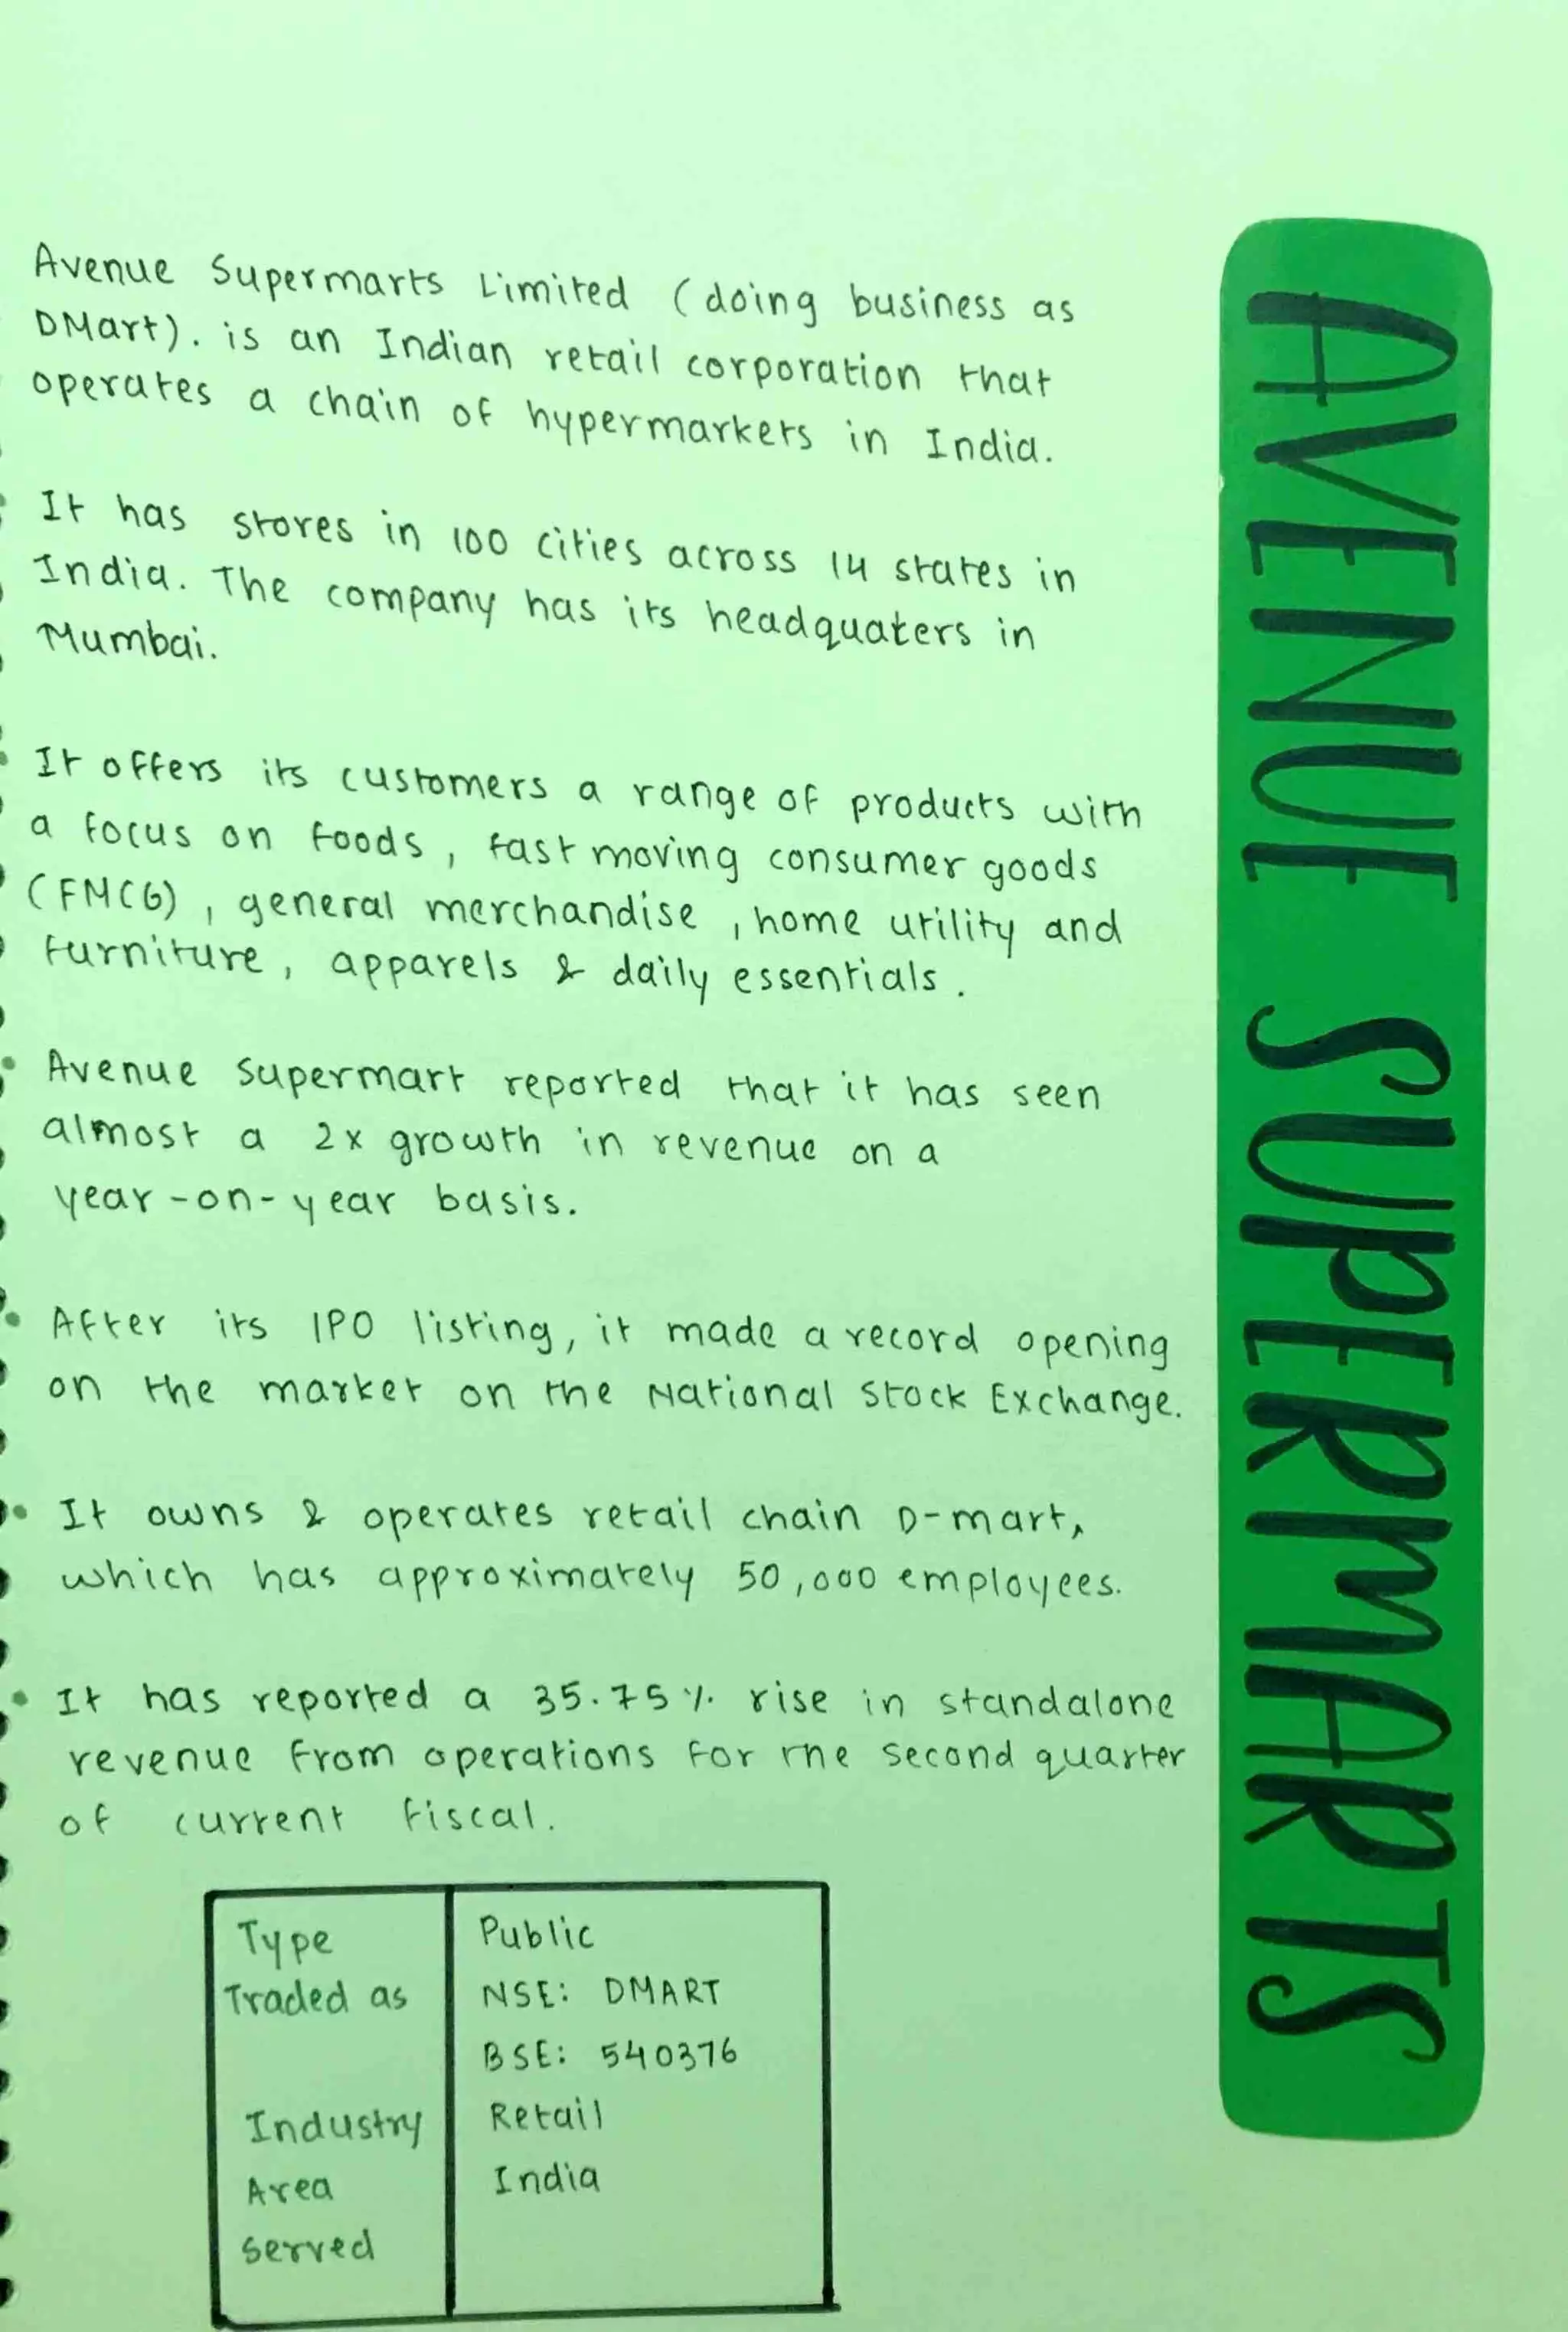 Avenue Supermarts Limited (doing business as
DMart). is an Indian retail corporation that
operates a chain of hypermarkets in India.
It has stores in 100 cities across 14 states in
India. The company has its headquaters in
Mumbai.
It offers its customers a range of products with
a focus on foods, fast moving consumer goods
(FMCG), general merchandise, home utility and
furniture, apparels & daily essentials.
Avenue Supermart reported that it has seen
almost a 2x growth in revenue on a
year-on-year basis.
After its IPO listing, it made a record opening
on the market on the National Stock Exchange.
It owns & operates retail chain D-mart,
which has approximately 50,000 employees.
It has reported a 35.75% rise in standalone
revenue from operations for the second quarter
of current fiscal.
Type Public
Traded as NSE: DMART
BSE: 540376
Industry Retail
Area India
served
AVENUE SUPERMARTS